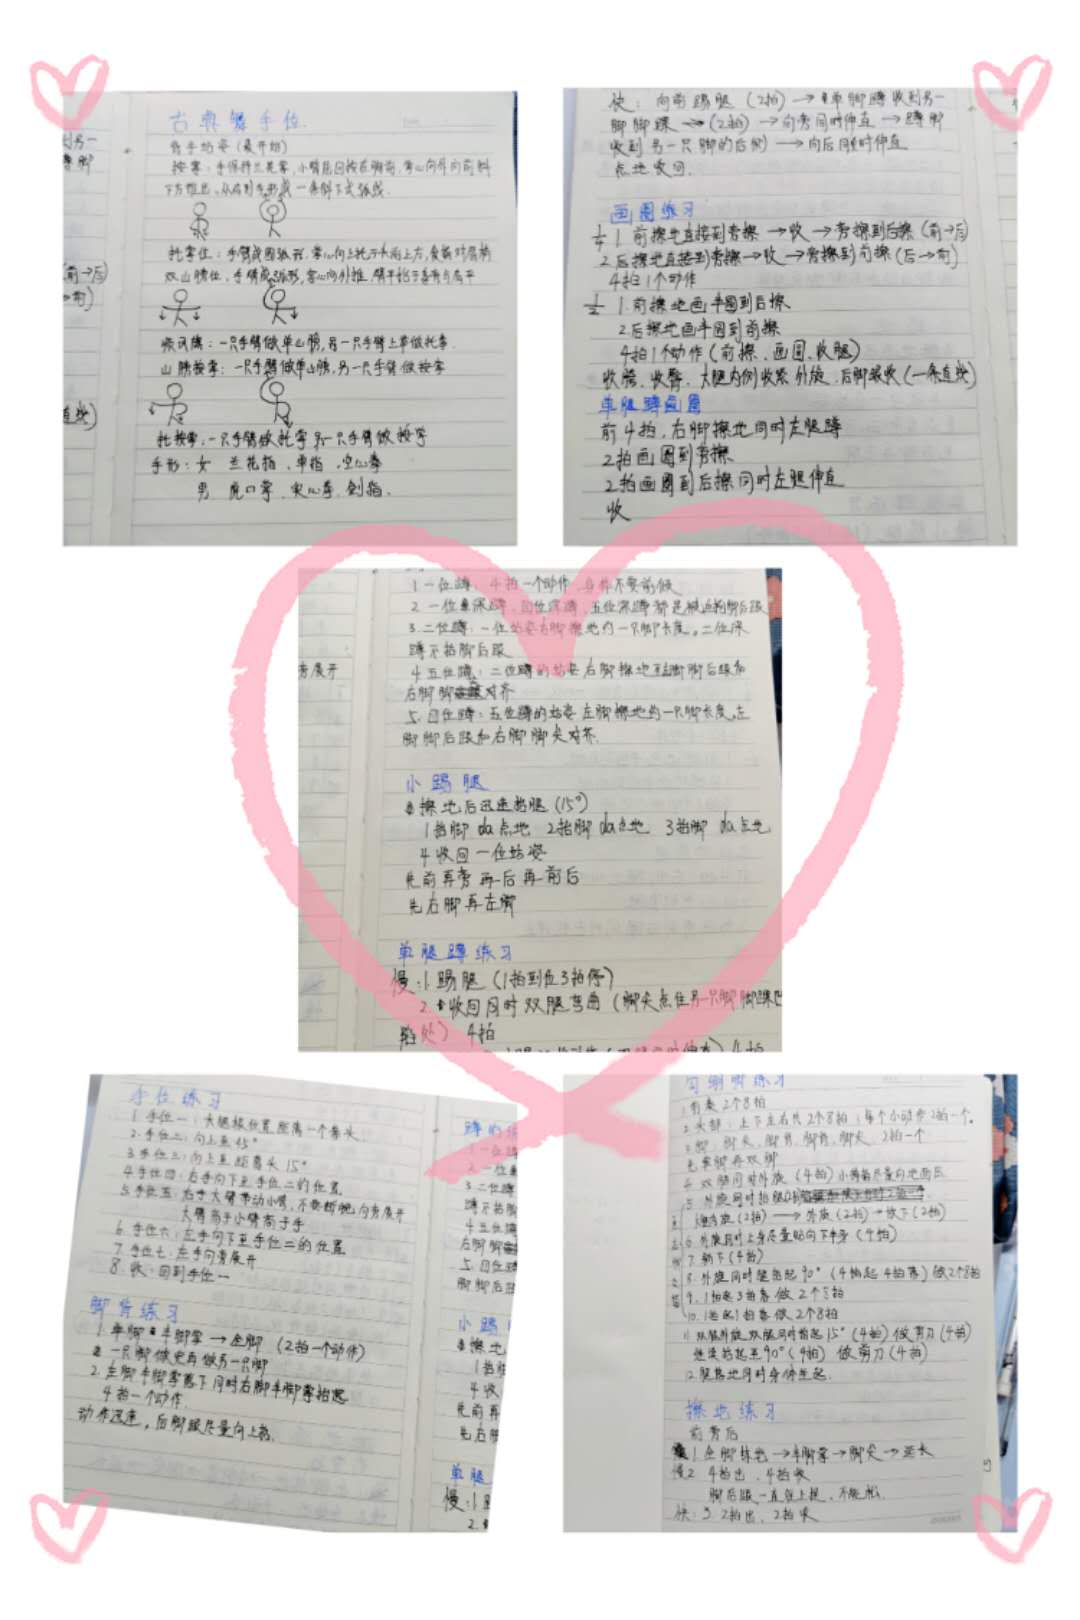 古典舞手位
背手站姿（最开始）
按掌：手保持兰花掌，小臂屈回按在胸前，掌心向外向前斜
下方推出，从右到左形成一条斜下弧线.
托掌位：手臂成圆弧形，掌心向上托于头前上方
双山膀位：手臂成弧形，掌心向外推
顺风旗：一只手臂做单山膀，另一只手臂上举做托掌.
山膀按掌：一只手臂做单山膀，另一只手臂做按掌
托按掌：一只手臂做托掌另一只手臂做按掌
手形：女 兰花指、单指、空心拳
男 虎口掌、实心拳、剑指.
快：向前踢腿（2拍）→单脚蹲收到另一
脚脚踝→（2拍）→向旁同时伸直→蹲脚
收到另一只脚的后侧）→向后同时伸直
点地收回.
画圈练习
1/4 1.前擦地直接到旁擦→收→旁擦到后擦（前→后）
2.后擦地直接到旁擦→收→旁擦到前擦（后→前）
4拍1个动作
1/2 1.前擦地画半圆到后擦
2.后擦地画半圆到前擦
4拍1个动作（前擦、画圆、收腿）
收胯、收臀、大腿内侧收紧外旋、后脚跟收（一条直线）
单腿蹲画圈
前4拍，右脚擦地同时左腿蹲
2拍画圈到旁擦
2拍画圈到后擦同时左腿伸直
收
1 一位蹲：4拍一个动作，身体不要前倾
2 一位深蹲、四位深蹲、五位深蹲都是被迫抬脚后跟
3.二位蹲：一位站姿右脚擦地约一只脚长度，二位深
蹲不抬脚后跟
4 五位蹲：二位蹲的站姿右脚擦地至左脚脚后跟和
右脚脚对齐
5.四位蹲：五位蹲的站姿左脚擦地约一只脚长度，左
脚脚后跟和右脚脚尖对齐.
旁展开
小踢腿
擦地后迅速踢腿（15°）
1抬脚 da点地 2抬脚 da点地 3抬脚 da点地
4 收回一位站姿
先前再旁再后再前后
先右脚再左脚
单腿蹲练习
慢：1 踢腿（1拍到位3拍停）
2.收回同时双腿弯曲（脚尖点住另一只脚脚踝凹
陷处）4拍
手位练习
1.手位一：大腿根位置距离一个拳头
2.手位二：向上至45°
3.手位三：向上至距离头15°
4.手位四：右手向下至手位二的位置
5.手位五：右手大臂带动小臂，不要翻腕向旁展开
大臂高于小臂高于手
6.手位六：左手向下至手位二的位置
7.手位七：左手向旁展开
8.收：回到手位一
脚背练习
1.单脚半脚掌→全脚（2拍一个动作）
一只脚做完再做另一只脚
2.左脚半脚掌落下同时右脚半脚掌抬起
4拍一个动作.
动作迅速，后脚跟尽量向上抬.
勾绷脚练习
1.前奏2个8拍
2.头部：上下左右共2个8拍；每个小动作2拍一个.
3.脚：脚尖、脚背、脚背、脚尖 2拍一个
先单脚再双脚
4.双腿同时外旋（4拍）小脚指尽量向地面压
5.外旋同时抬腿
外旋（2拍）→放下（2拍）
6.外旋同时上身尽量贴向下半身（4拍）
7.躺下（4拍）
8.外旋同时腿抬起90°（4拍起4拍落）做2个8拍
9.1拍起3拍落做2个8拍
10.1拍起1拍落做2个8拍
11.双腿外旋双腿同时抬起15°（4拍）做剪刀（4拍）
继续抬起至90°（4拍）做剪刀（4拍）
12.腿落地同时身体坐起.
擦地练习
前旁后
1 全脚擦出→半脚掌→脚尖→延长
慢2 4拍出、4拍收
脚后跟一直往上提，不能松.
快：3.2拍出、2拍收